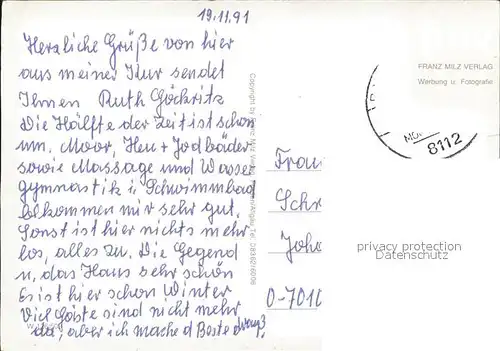 19.11.91
Herzliche Grüße von hier
aus meiner Kur sendet
Ihnen Ruth Göckritz
Die Hälfte der Zeit ist schon
um. Moor, Heu + Jodbäder
sowie Massage und Wasser
gymnastik u Schwimmbad
bekommen mir sehr gut.
Sonst ist hier nichts mehr
los, alles zu. Die Gegend
u, das Haus sehr schön
Es ist hier schon Winter
Viel Gäste sind nicht mehr
da, aber ich mache d Beste draus
Copyright by Franz Milz Verlag
FRANZ MILZ VERLAG
Werbung u. Fotografie
8112
Frau
Schr
Joh
0-701
privacy protection